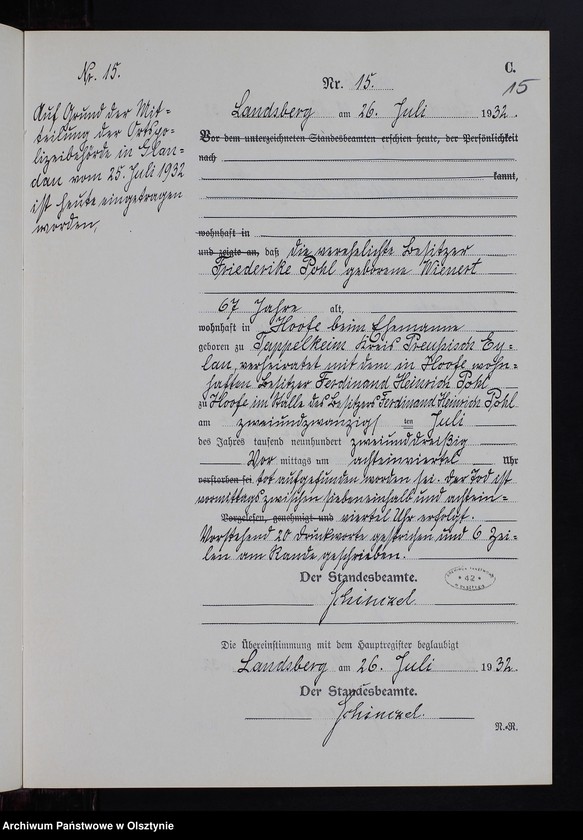 Nr. 15.
Auf Grund der Mit-
teilung der Ortspo-
lizeibehörde in Glan-
dau vom 25. Juli 1932
ist heute eingetragen
worden.
C.
15
Nr. 15.
Landsberg am 26. Juli 1932.
Vor dem unterzeichneten Standesbeamten erschien heute, der Persönlichkeit
nach
kannt,
wohnhaft in
und zeigte an, daß die verehelichte Besitzer
Friederike Pohl geborene Wienert
67 Jahre alt,
wohnhaft in Hoofe beim Ehemanne
geboren zu Tappelkeim Kreis Preußisch Ey-
lau, verheiratet mit dem in Hoofe wohn-
haften Besitzer Ferdinand Heinrich Pohl
zu Hoofe im Stalle des Besitzers Ferdinand Heinrich Pohl
am zweiundzwanzigsten Juli
des Jahres tausend neunhundert zweiunddreißig
Vor mittags um achteinviertel Uhr
verstorben sei tot aufgefunden worden sei. Der Tod ist
vormittags zwischen siebeneinhalb und achtein-
Vorgelesen, genehmigt und viertel Uhr erfolgt.
Vorstehend 20 Druckworte gestrichen und 6 Zei-
len am Rande geschrieben.
Der Standesbeamte.
42
Schinckel.
Die Übereinstimmung mit dem Hauptregister beglaubigt
Landsberg am 26. Juli 1932.
Der Standesbeamte.
Schinckel.
N.-R.
Archiwum Państwowe w Olsztynie